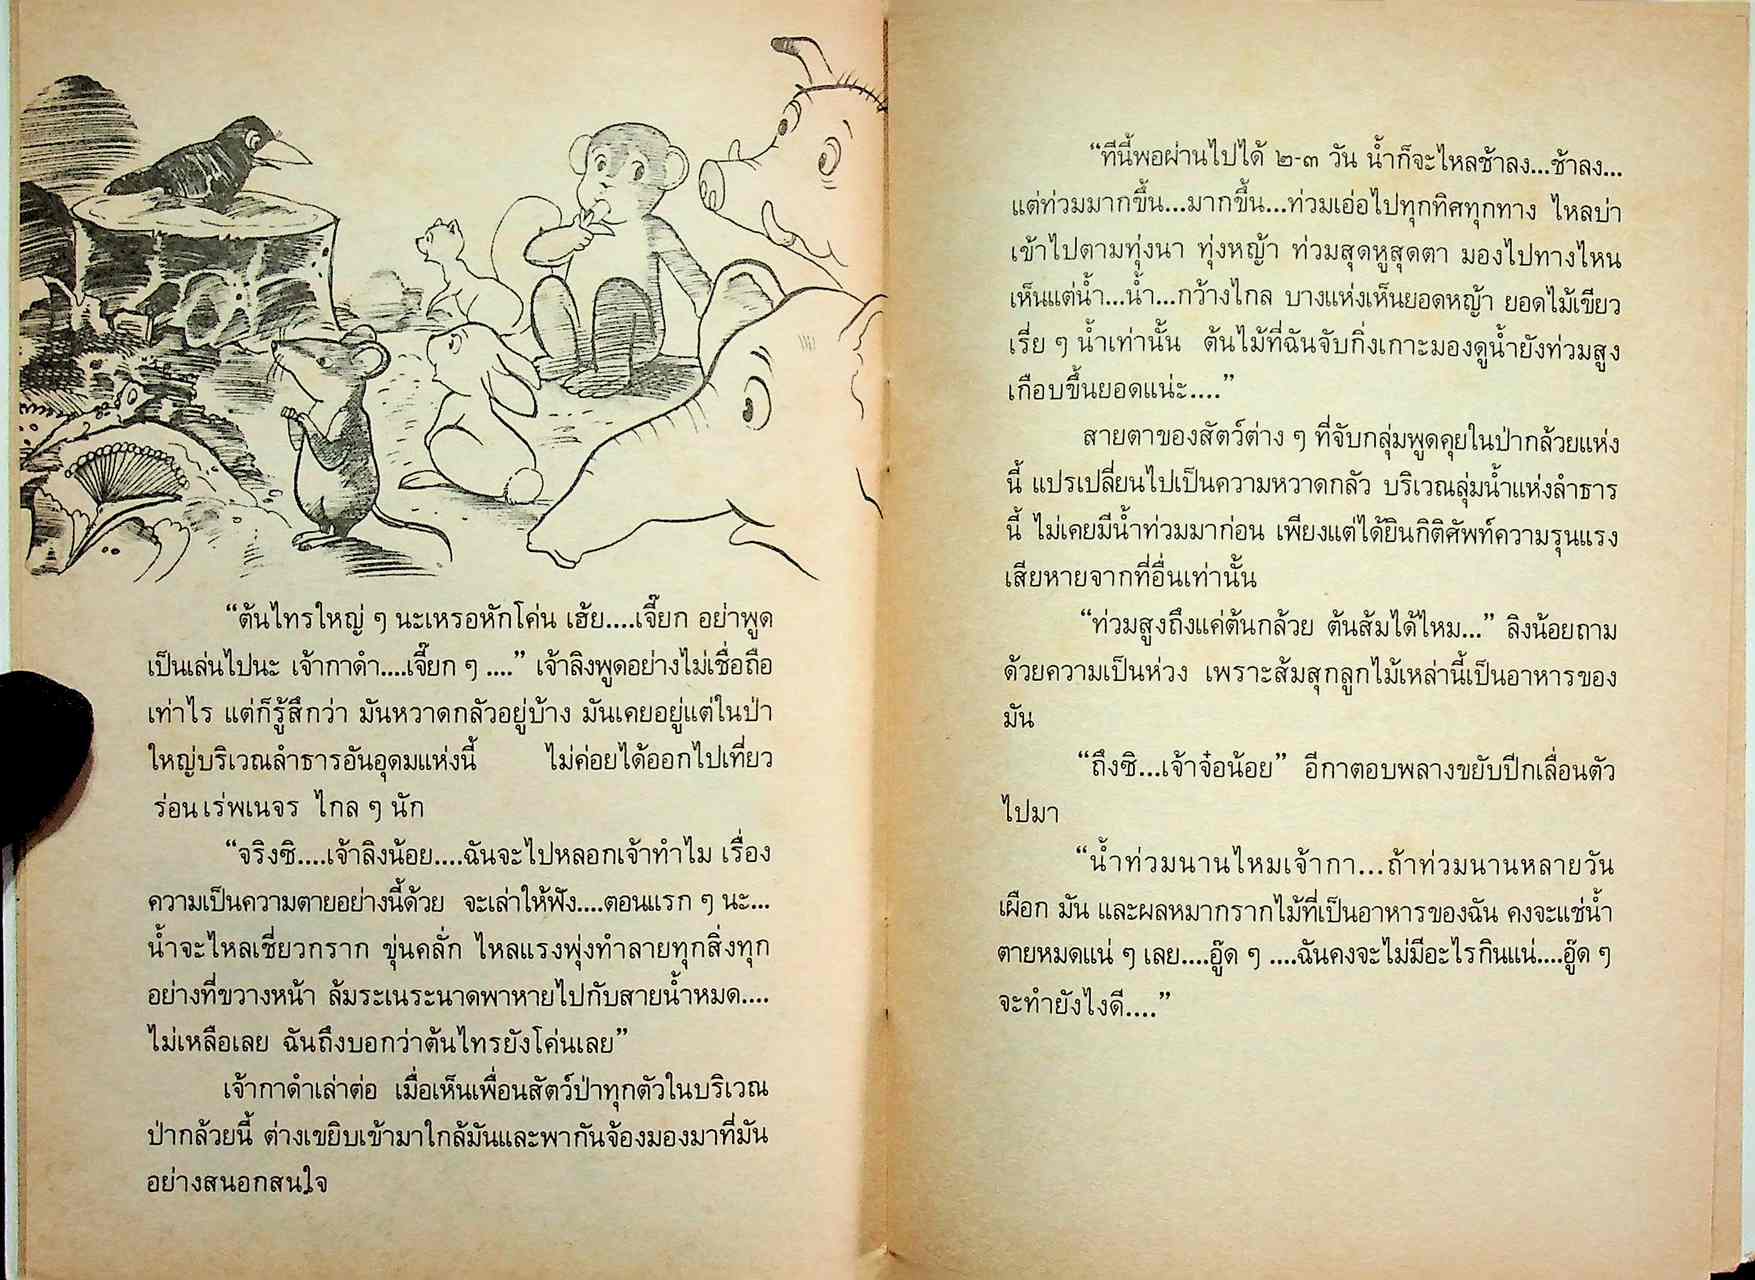 “ต้นไทรใหญ่ ๆ นะเหรอหักโค่น เฮ้ย....เจี๊ยก อย่าพูด
เป็นเล่นไปนะ เจ้ากาดำ....เจี๊ยก ๆ ....” เจ้าลิงพูดอย่างไม่เชื่อถือ
เท่าไร แต่ก็รู้สึกว่า มันหวาดกลัวอยู่บ้าง มันเคยอยู่แต่ในป่า
ใหญ่บริเวณลำธารอันอุดมแห่งนี้ ไม่ค่อยได้ออกไปเที่ยว
ร่อนเร่พเนจร ไกล ๆ นัก
“จริงซิ....เจ้าลิงน้อย....ฉันจะไปหลอกเจ้าทำไม เรื่อง
ความเป็นความตายอย่างนี้ด้วย จะเล่าให้ฟัง....ตอนแรก ๆ นะ...
น้ำจะไหลเชี่ยวกราก ขุ่นคลั่ก ไหลแรงพุ่งทำลายทุกสิ่งทุก
อย่างที่ขวางหน้า ล้มระเนระนาดพาหายไปกับสายน้ำหมด....
ไม่เหลือเลย ฉันถึงบอกว่าต้นไทรยังโค่นเลย”
เจ้ากาดำเล่าต่อ เมื่อเห็นเพื่อนสัตว์ป่าทุกตัวในบริเวณ
ป่ากล้วยนี้ ต่างเขยิบเข้ามาใกล้มันและพากันจ้องมองมาที่มัน
อย่างสนอกสนใจ
“ทีนี้พอผ่านไปได้ ๒-๓ วัน น้ำก็จะไหลช้าลง...ช้าลง...
แต่ท่วมมากขึ้น...มากขึ้น...ท่วมเอ่อไปทุกทิศทุกทาง ไหลบ่า
เข้าไปตามทุ่งนา ทุ่งหญ้า ท่วมสุดหูสุดตา มองไปทางไหน
เห็นแต่น้ำ...น้ำ...กว้างไกล บางแห่งเห็นยอดหญ้า ยอดไม้เขียว
เรี่ย ๆ น้ำเท่านั้น ต้นไม้ที่ฉันจับกิ่งเกาะมองดูน้ำยังท่วมสูง
เกือบขึ้นยอดแน่ะ....”
สายตาของสัตว์ต่าง ๆ ที่จับกลุ่มพูดคุยในป่ากล้วยแห่ง
นี้ แปรเปลี่ยนไปเป็นความหวาดกลัว บริเวณลุ่มน้ำแห่งลำธาร
นี้ ไม่เคยมีน้ำท่วมมาก่อน เพียงแต่ได้ยินกิติศัพท์ความรุนแรง
เสียหายจากที่อื่นเท่านั้น
“ท่วมสูงถึงแค่ต้นกล้วย ต้นส้มได้ไหม...” ลิงน้อยถาม
ด้วยความเป็นห่วง เพราะส้มสุกลูกไม้เหล่านี้เป็นอาหารของ
มัน
“ถึงซิ...เจ้าจ๋อน้อย” อีกาตอบพลางขยับปีกเลื่อนตัว
ไปมา
“น้ำท่วมนานไหมเจ้ากา...ถ้าท่วมนานหลายวัน
เผือก มัน และผลหมากรากไม้ที่เป็นอาหารของฉัน คงจะแช่น้ำ
ตายหมดแน่ ๆ เลย....อู๊ด ๆ ....ฉันคงจะไม่มีอะไรกินแน่....อู๊ด ๆ
จะทำยังไงดี....”